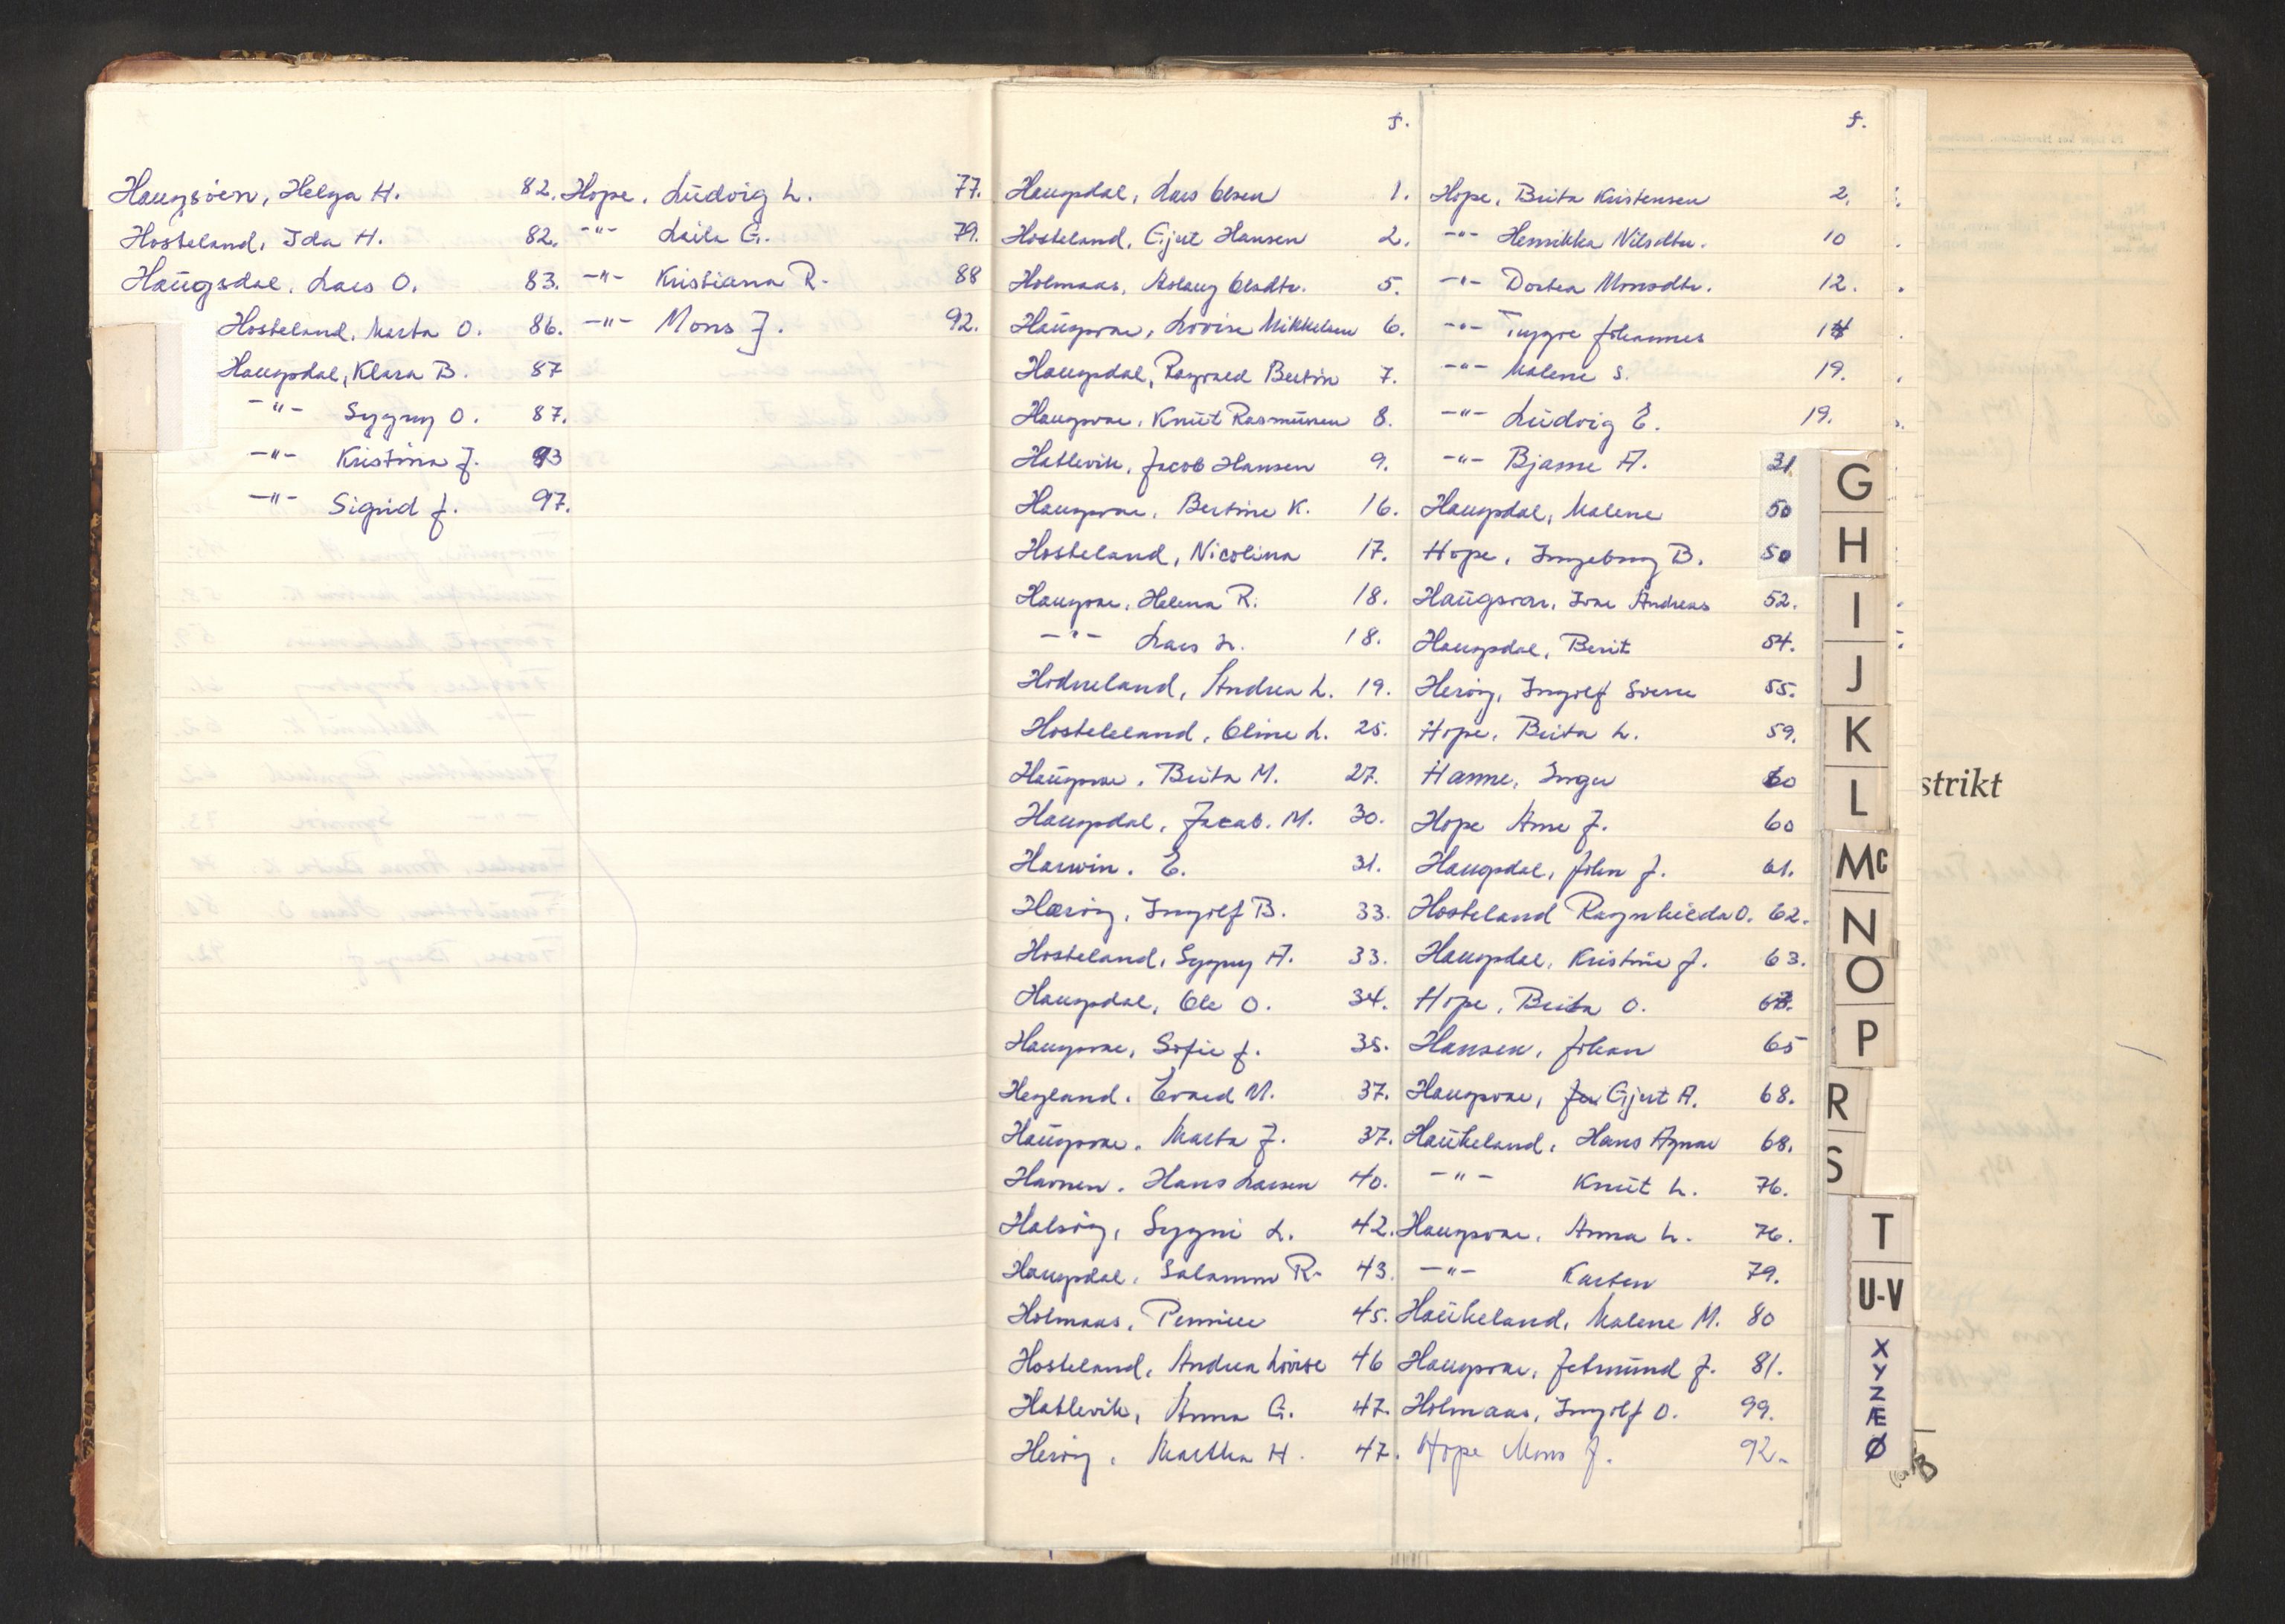 Haugsøen, Helga H. 82.
Hosteland, Ida H. 82.
Haugsdal, Lars O. 83.
Hosteland, Marta O. 86.
Haugsdal, Klara B. 87
-"- Sygny O. 87.
-"- Kristina J. 93
-"- Sigrid J. 97.
Hope, Ludvig L. 77.
-"- Laila G. 79.
-"- Kristiana R. 88
-"- Mons J. 92.
f.
Haugsdal, Lars Olsen 1.
Hosteland, Gjert Hansen 2.
Holmaas, Aslaug Olsdtr. 5.
Haugsvær, Lovise Mikkelsen 6.
Haugsdal, Ragvald Bertin 7.
Haugsvær, Knut Rasmussen 8.
Hatlevik, Jacob Hansen 9.
Haugsvær, Bertine K. 16.
Hosteland, Nicolina 17.
Haugsvær, Helena R. 18.
-"- Lars L. 18.
Hodneland, Andrea L. 19.
Hosteleland, Oline L. 25.
Haugsvær, Brita M. 27.
Haugsdal, Jacab. M. 30.
Harwin. E. 31.
Hærøy, Ingolf B. 33.
Hosteland, Sygny A. 33.
Haugsdal, Ole O. 34.
Haugsvær, Sofie J. 35.
Hegland. Evald M. 37.
Haugsvær. Marta J. 37.
Havnen. Hans Larsen 40.
Halsøy, Sygni L. 42.
Haugsdal, Salamon R. 43.
Holmaas, 45.
Hosteland, Andrea Lovise 46
Hatlevik, Anna G. 47.
Herøy, Martha H. 47.
f.
Hope, Brita Kristensen 2.
-"- Henrikka Nilsdtr. 10
-"- Dortea Monsdtr. 12.
-"- Trygve Johannes 14
-"- Malene S. 19.
-"- Ludvig E. 19.
-"- Bjarne A. 31.
Haugsdal, Malene 50
Hope, Ingeborg B. 50
Haugsvær, Ivar Andreas 52.
Haugsdal, Berit 54.
Herøy, Ingolf Sverre 55.
Hope, Brita L. 59.
Hanne, Inger 60
Hope Arne J. 60
Haugsdal, John J. 61.
Hosteland Ragnhilda O. 62.
Haugsdal, Kristine J. 63.
Hope, Brita O.
Hansen, Johan 65
Haugsvær, Gjert A. 68.
Haukeland, Hans Agnar 68.
-"- Knut L. 76.
Haugsvær, Anna L. 76.
-"- Karsten 79.
Haukeland, Malene M. 80
Haugsvær, Jetmund J. 81.
Holmaas, Ingolf O. 99.
Hope Mons J. 92.
G
H
I
J
K
L
Mc
N
O
P
R
S
T
U-V
X
Y
Z
Æ
Ø
strikt